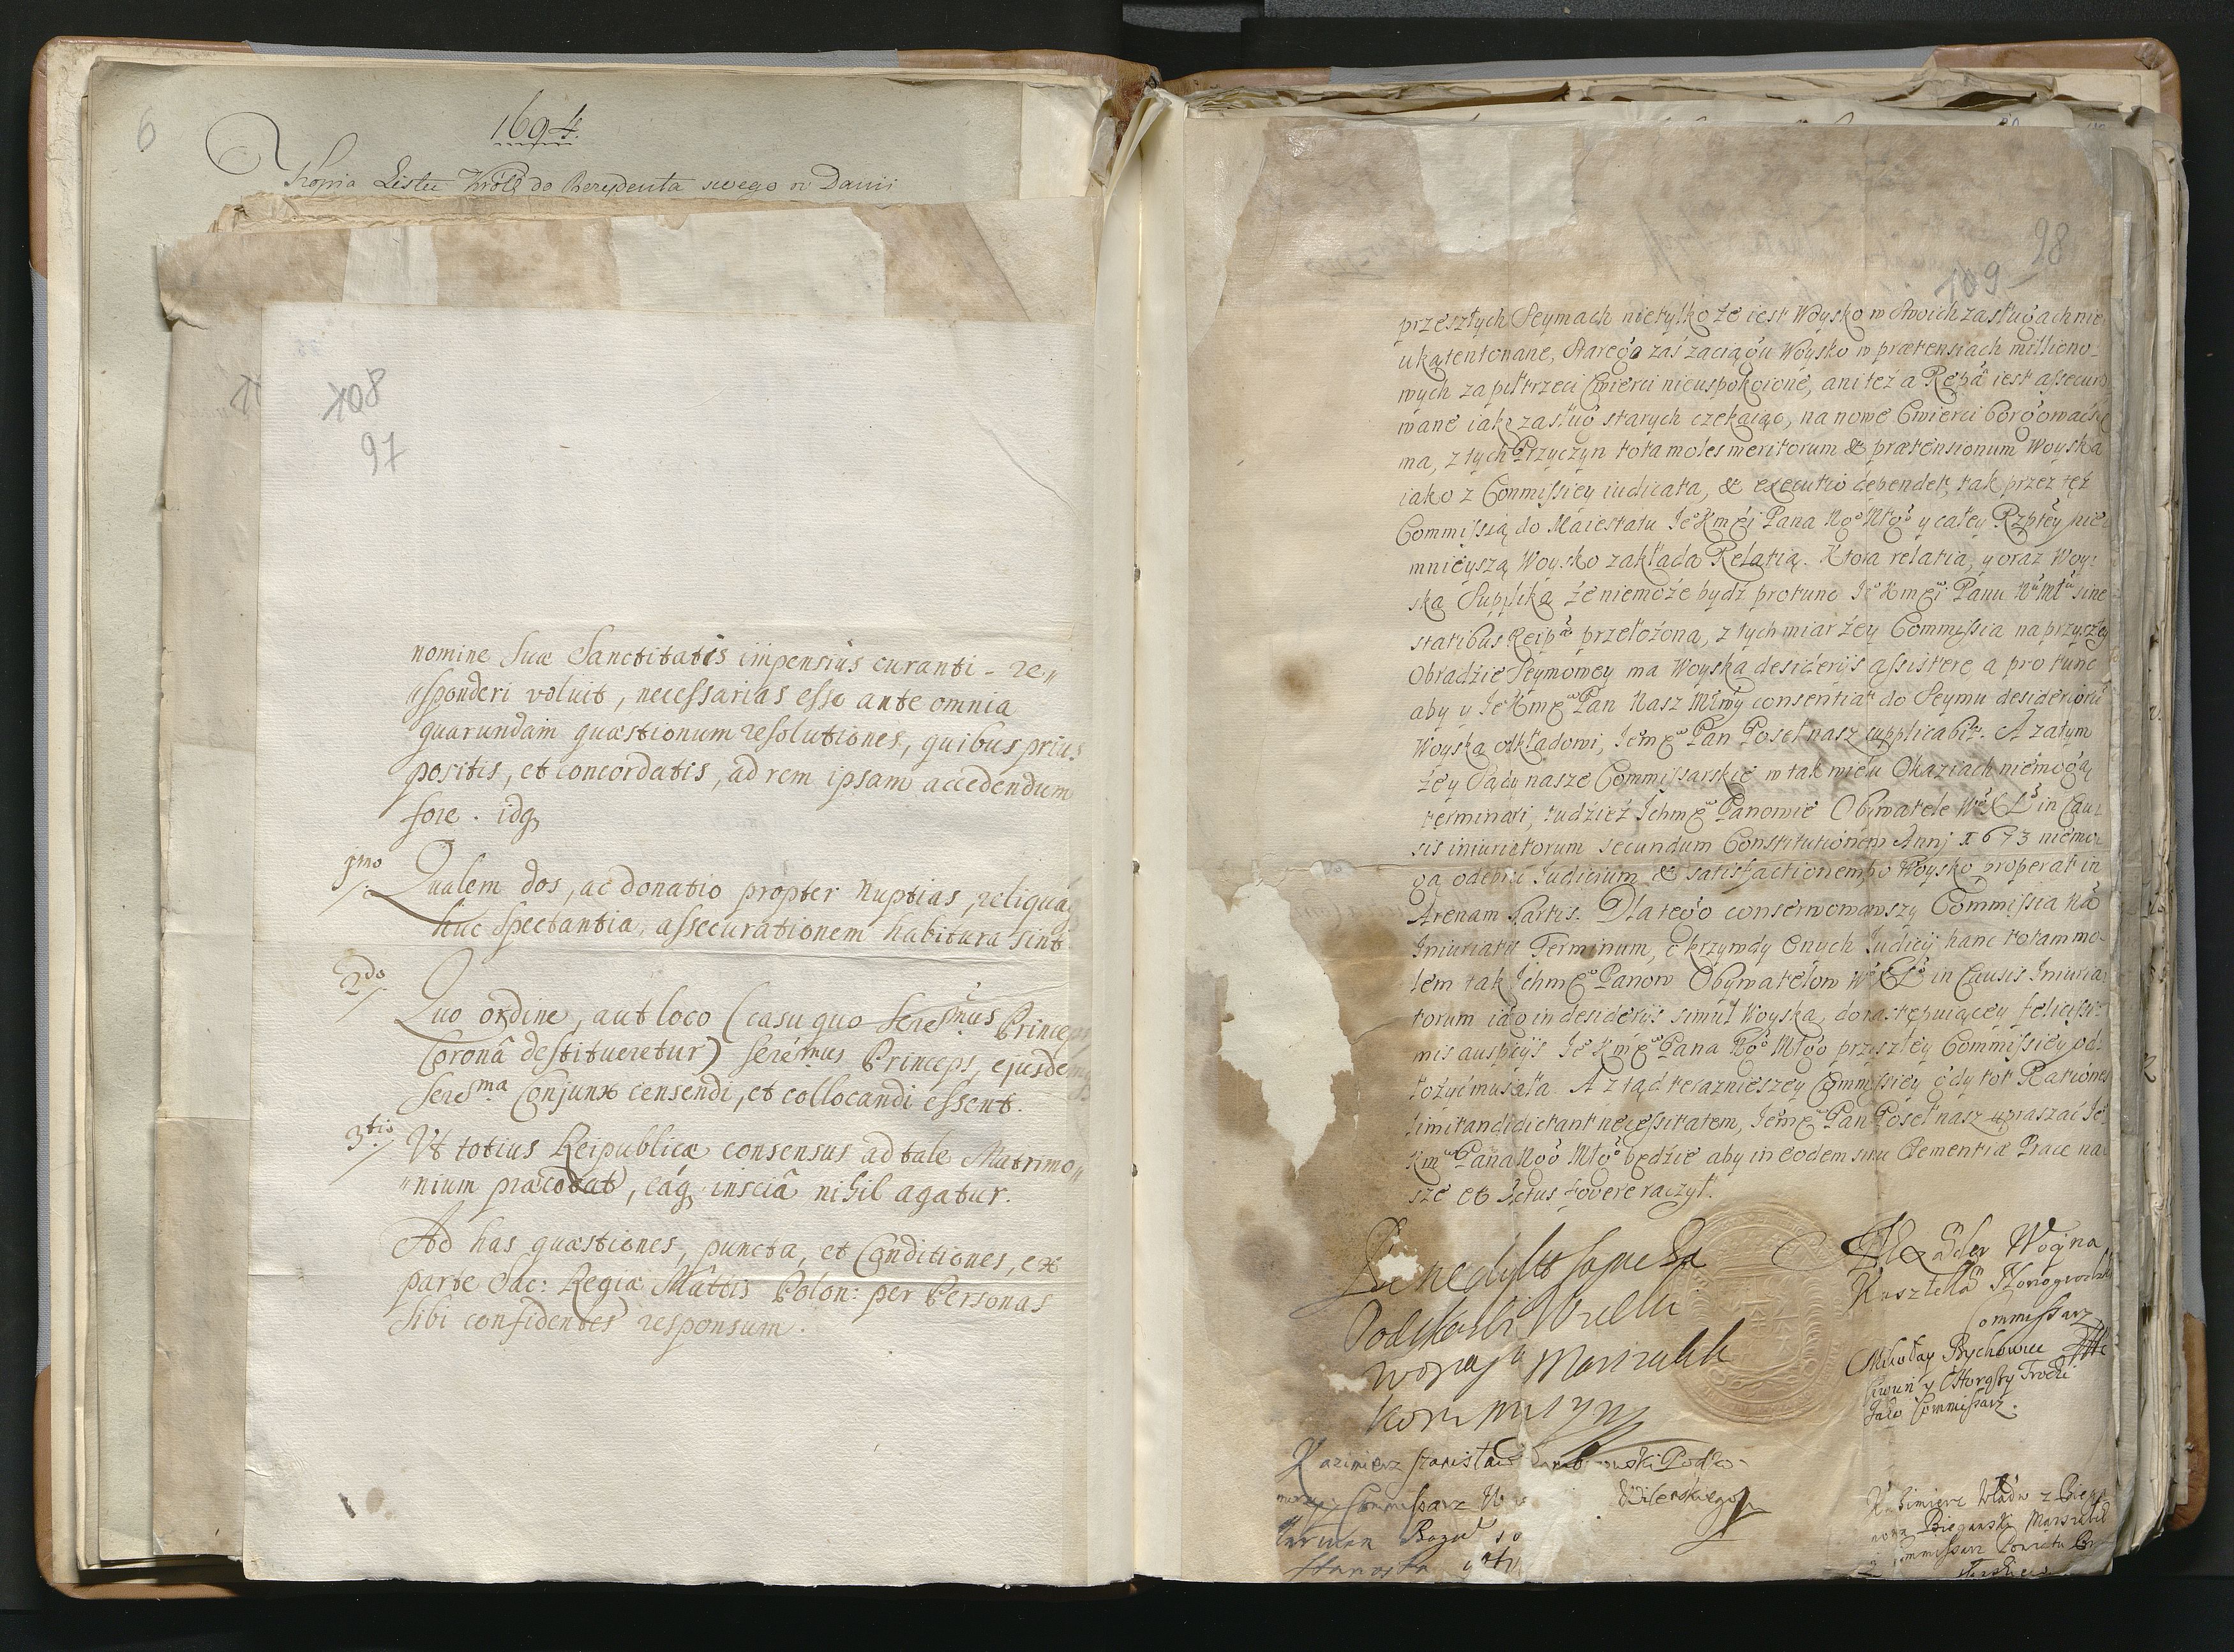 6
1694.
Kopia Listu Króla do Rezydenta swego w Danii
108
97
nomine Suæ Sanctitatis impensius curanti - re„
„sponderi voluit, necessarias esse ante omnia
quarundam quæstionum resolutiones, quibus prius
positis, et concordatis, ad rem ipsam accedendum
fore. idq
1mo Qualem dos, ac donatio propter nuptias, reliquaq
huc spectantia, assecurationem habitura sint
2do Quo ordine, aut loco (casu quo Seresmus Princeps
Coronâ destitueretur) Serémus Princeps, ejusdem
Seresma Conjunx censendi, et collocandi essent.
3tio Ut totius Reipublicæ consensus ad tale Matrimo„
„nium præcedat, eáq insciâ nihil agatur.
Ad has quæstiones, puncta, et Conditiones, ex
parte Sac: Regiæ Mâttis Polon: per Personas
Sibi confidentes responsum.
98
109
przeszłych Seymach nietylko że iest Woysko w Swoich zasługach nie
ukątentowane, Starego zaś zaciągu Woysko w prætensiach milliono-
wych za pułtrzeci Cwierci nieuspokoione, ani też a Repã iest assecuro
wane iako zasług starych czekaiąc, na nowe Cwierci borgować
ma, z tych Przyczyn tota moles meritorum & prætensionum Woyska
iako z Commissiey iudicata, & executio dependet, tak przez też
Commissią do Maiestatu Je° Kmęi Pana No° Mło° y całey Rzptey nie
mnieyszą Woysko zakłada Relatią. Ktora relatia, y oraz Woy-
ska Supplika że niemoże bydź protunc Je° Kmęi Panu Nu Młu sine
statibus Reip. przełożona, z tych miar żey Commissia na przyszłey
Obradzie Seymowey ma Woyska desiderijs assistere a pro tunc
aby y Je° Kmę Pan Nasz Młwy consentiat do Seymu desideriorũ
Woyska odkładowi, Jemę Pan Poseł nasz supplicabit. A zatym
żey Sądy nasze Commissarskie w tak wielu Okaziach niemogą
terminari, tudzież Ichmę Panowie Obywatele W° X° L° in Cau-
sis iniuriatorum secundum Constitutionem Annj 1673 niemo-
gą odebrać Judicium & satisfactionem, bo Woysko properat in
Arenam Martis. Dlatego conserwowawszy Commissia
Iniuriatis Terminum, o krzywdy Onych Judicij hanc totam mo-
lem tak Ichmę Panow Obywatelow W X L° in Causis Iniuria-
torum iako in desiderijs simul Woyska, do następuiącey felicissi-
mis auspicijs Je° Kmę Pana No° Mło° przyszłey Commissiey od-
łożyć musiała. A ztąd terazniejszey Commissiey gdy tot Rationes
limitandi dictant necessitatem, Jemę Pan Poseł nasz upraszać Je°
Kmę Pana No° Mło° będzie aby in eodem sinu Clementiæ Prace na-
sze et Actus fovere raczył.
Benedykt Sapieha
Podskarbi Wielki
Marszałek
Alexãder Woyna
Kasztellã Nowogrodzki
Commissarz
Mikołay Bychowiec
Ciwun y Horodny Trocki
Jako Commissarz.
Kazimierz Stanisław Podko-
morzy Commissarz Wileńskiego
Starosta
Kazimierz Władw z Biega
nowa Biegański Marszałek
Commissarz Powiatu